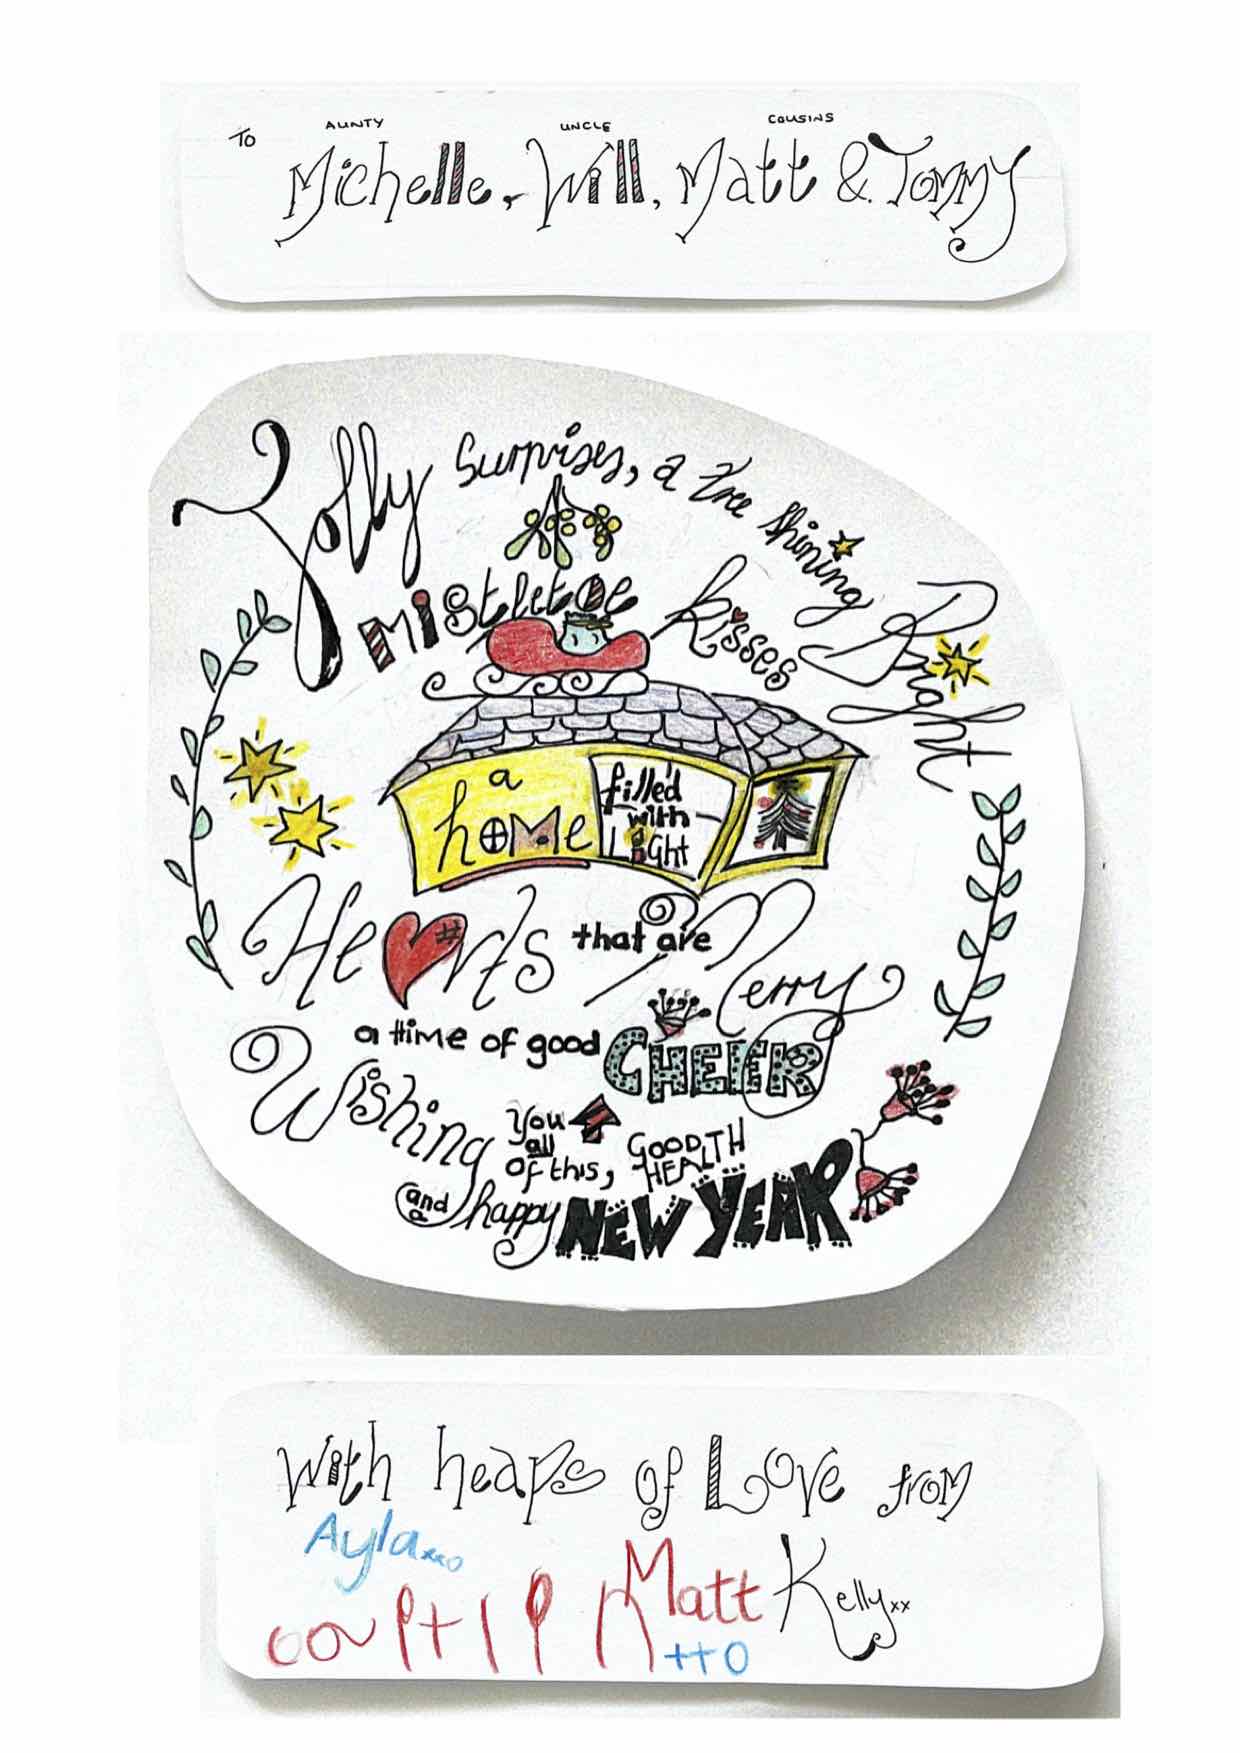 To
AUNTY UNCLE COUSINS
Michelle, Will, Matt & Tommy
Jolly surprises, a tree shining Bright
mistletoe kisses
a home
filled
with
Light
Hearts that are Merry
a time of good CHEER
Wishing
You
all
of this, GOOD HEALTH
and a happy NEW YEAR
With heaps of Love from
Ayla xxo
Matt Kelly xx